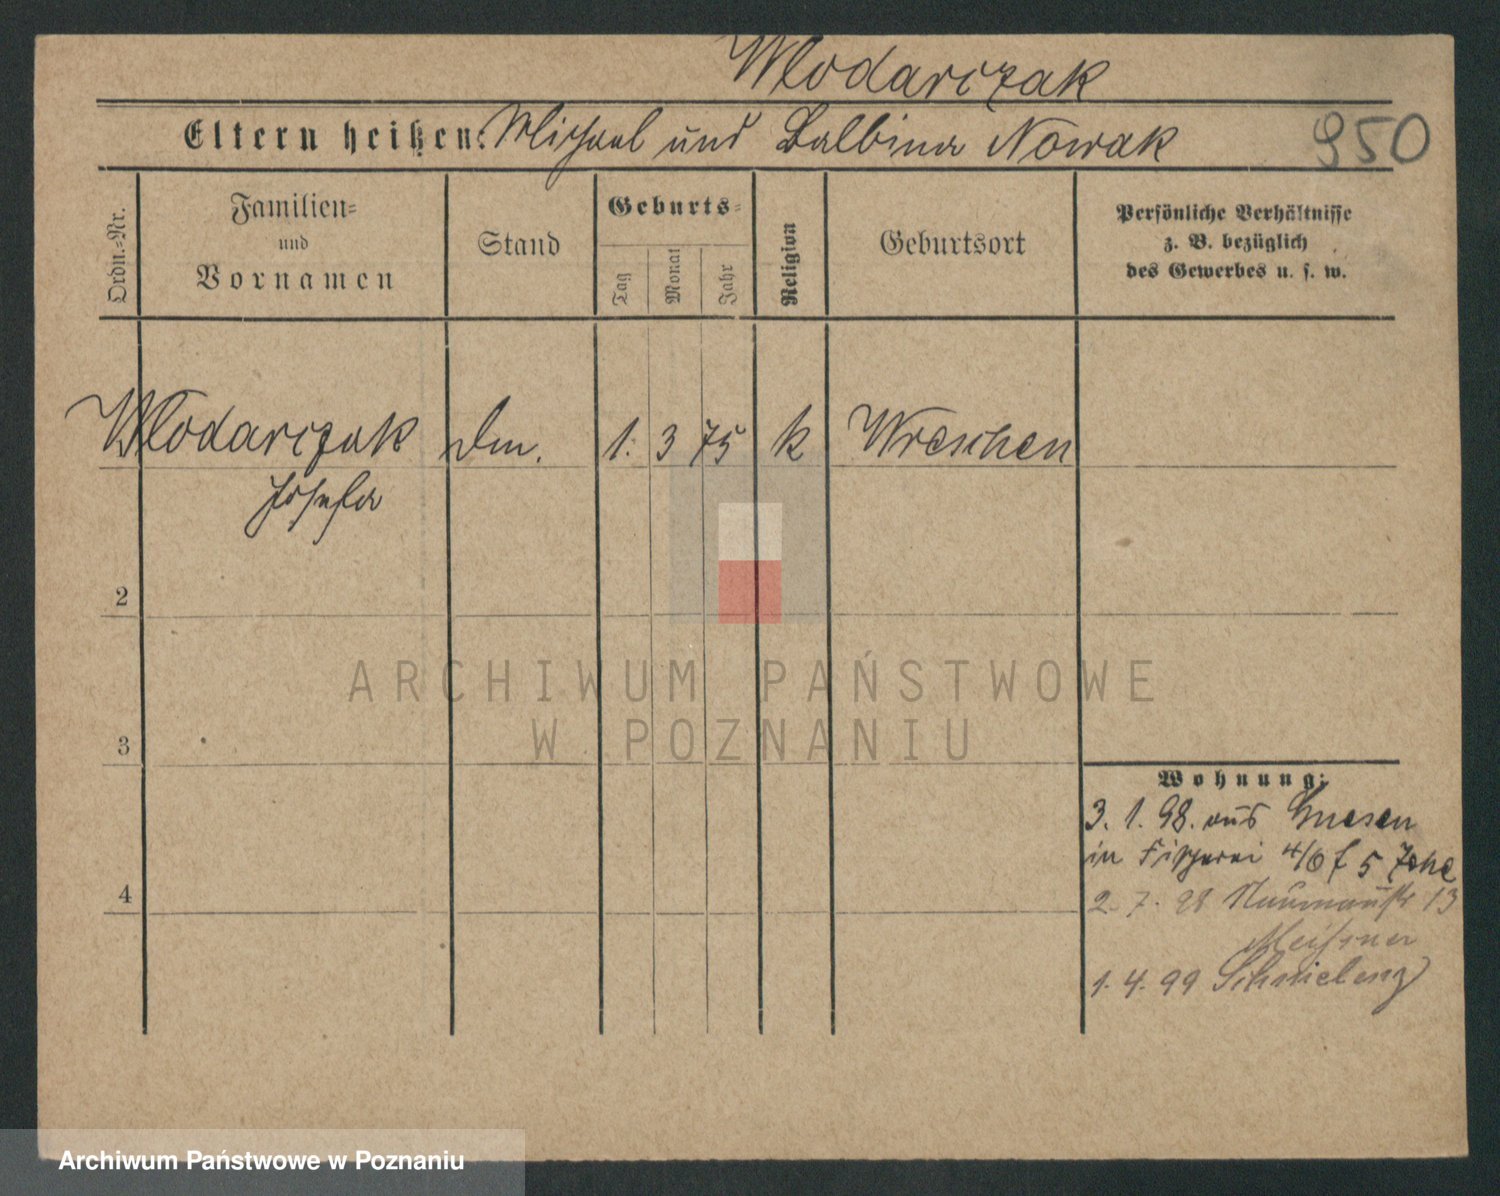 Wlodarczak
Eltern heißen: Michael und Balbina Nowak
950
Ordn.-Nr.
Familien-
und
Vornamen
Stand
Geburts-
Tag
Monat
Jahr
Religion
Geburtsort
Persönliche Verhältnisse
z. B. bezüglich
des Gewerbes u. s. w.
Wlodarczak Dm. 1. 3 75 k Wreschen
Josefa
2
3
4
Wohnung:
3. 1. 98. aus Gnesen
in Fischerei 4/6 f 5
2. 7. 98 Naumannstr 13
1. 4. 99
ARCHIWUM PAŃSTWOWE
W POZNANIU
Archiwum Państwowe w Poznaniu